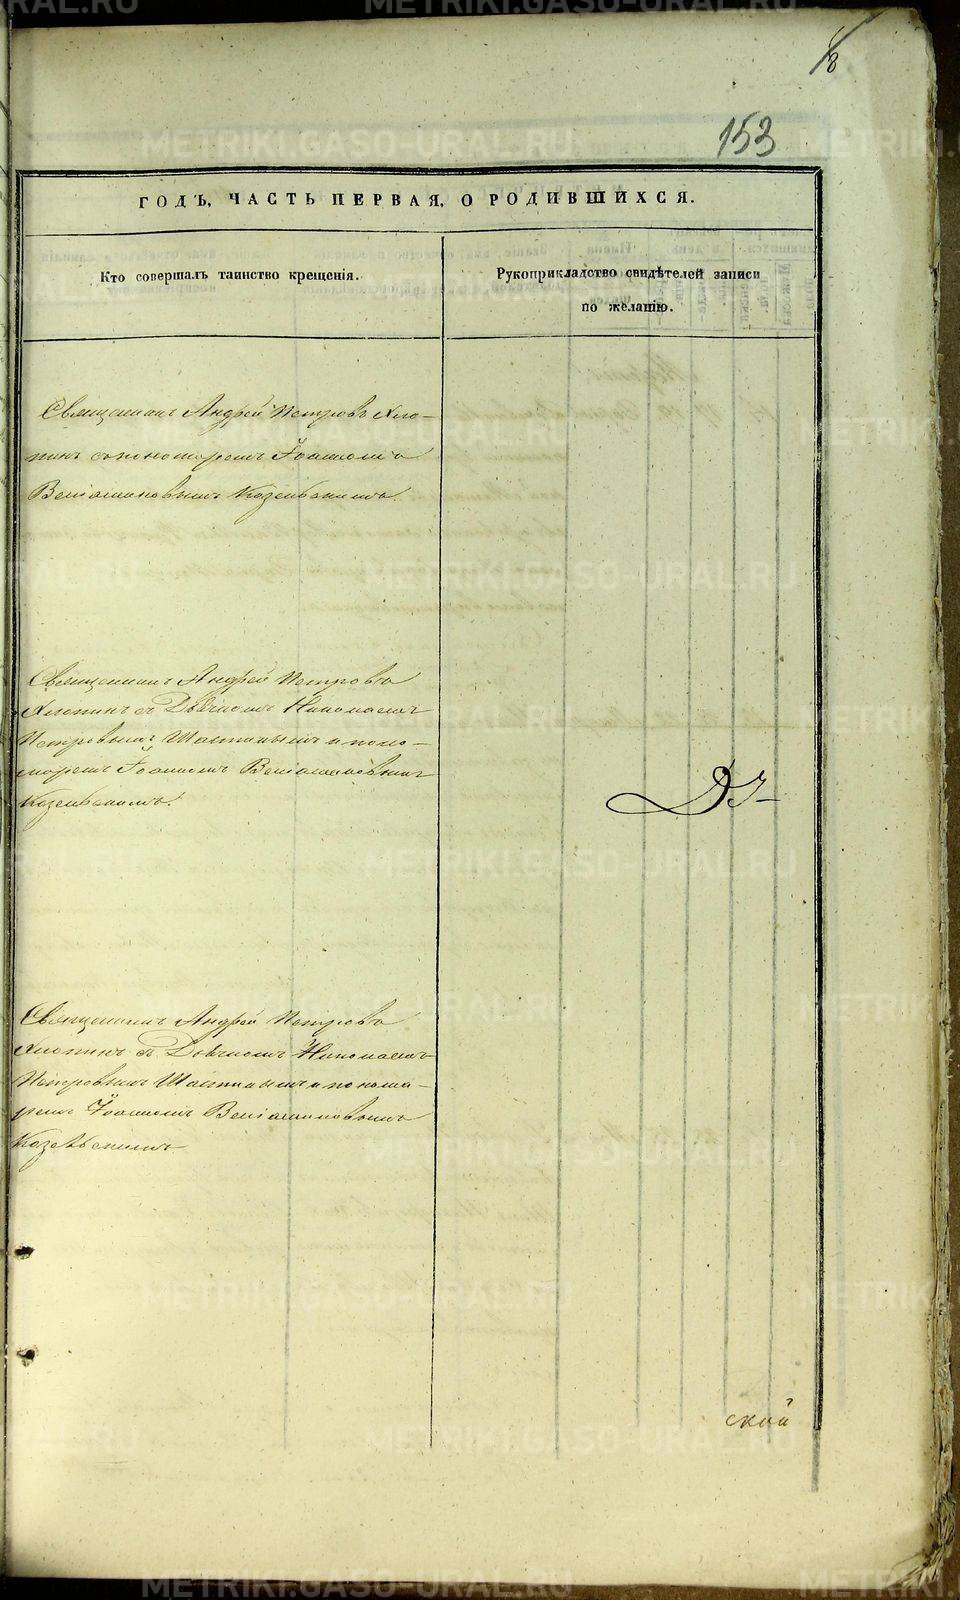 8
153
ГОДЪ, ЧАСТЬ ПЕРВАЯ, О РОДИВШИХСЯ.
Кто совершалъ таинство крещенія.
Рукоприкладство свидѣтелей записи
по желанію.
Священникъ Андрей Петровъ Хло-
пинъ с пономаремъ Іоанномъ
Веніаминовымъ Козельскимъ.
Священникъ Андрей Петровъ
Хлопинъ съ Діакономъ Николаемъ
Петровымъ и поно-
маремъ Іоанномъ Веніаминовымъ
Козельскимъ.
Священникъ Андрей Петровъ
Хлопинъ съ Діакономъ Николаемъ
Петровымъ и понома-
ремъ Іоанномъ Веніаминовымъ
Козельскимъ
ской
METRIKI.GASO-URAL.RU